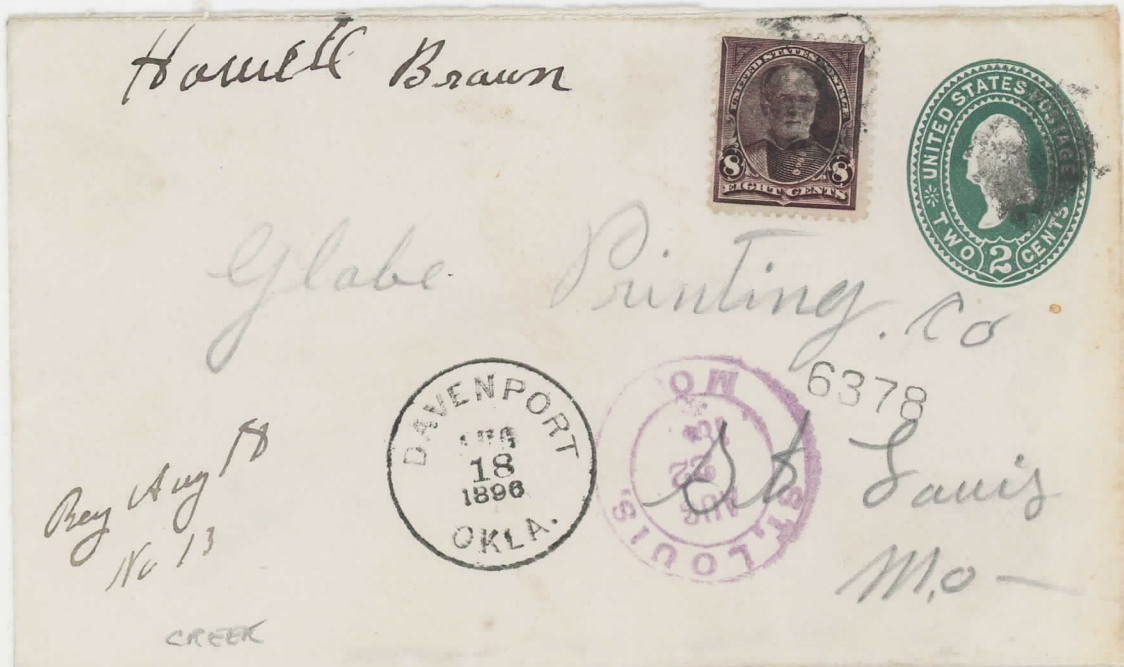 Howell Brown
UNITED STATES POSTAGE
8 8
EIGHT CENTS
UNITED STATES POSTAGE
TWO 2 CENTS
Globe Printing. Co
6378
DAVENPORT
AUG
18
1896
OKLA.
ST. LOUIS,
MO.
AUG
22
St Louis
Mo
Reg Aug 18
No 13
CREEK